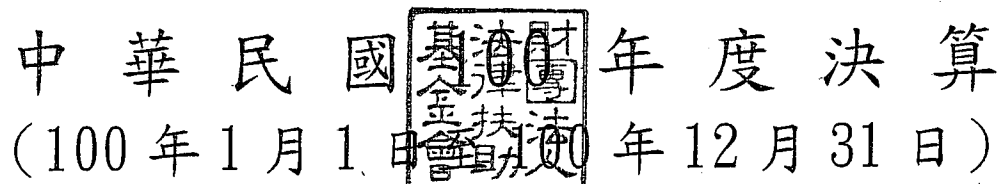 中華民國100年度決算
(100年1月1日至100年12月31日)
財團法人法律扶助基金會